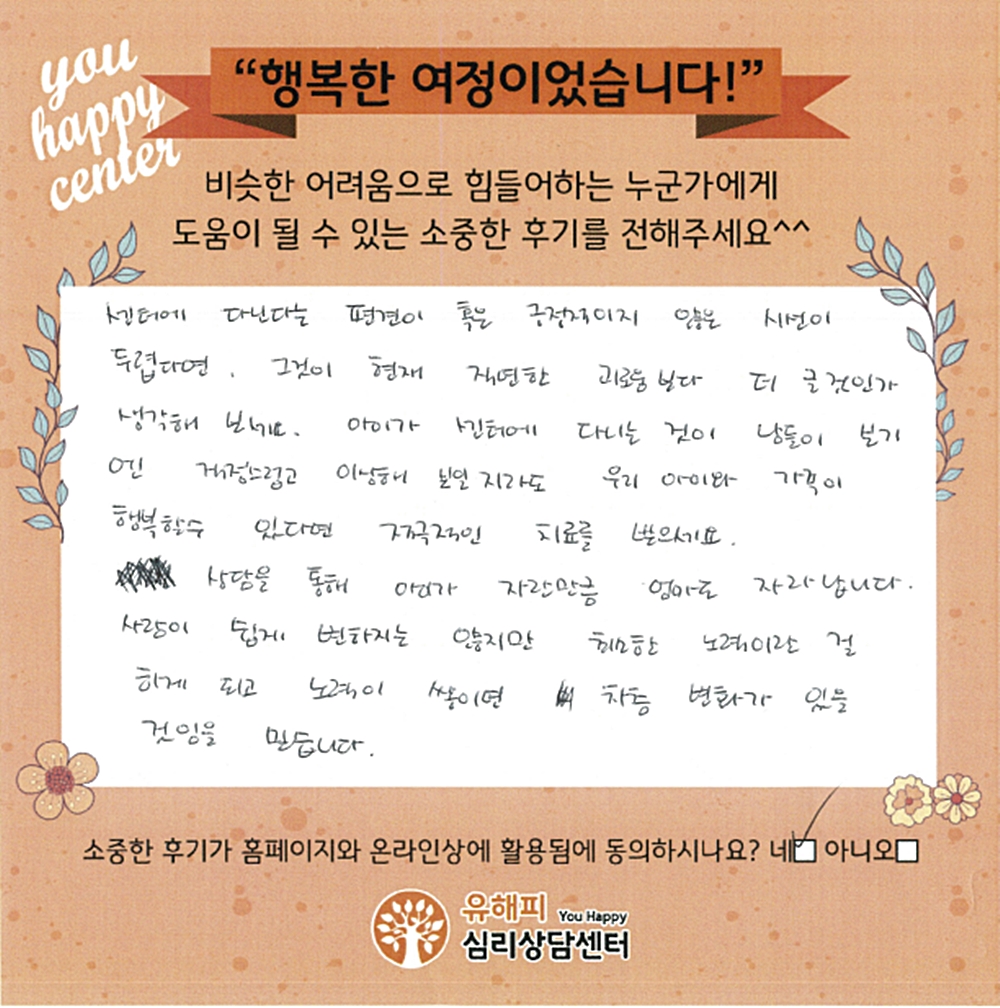 you
happy
center
“행복한 여정이었습니다!”
비슷한 어려움으로 힘들어하는 누군가에게
도움이 될 수 있는 소중한 후기를 전해주세요^^
센터에 다닌다는 편견이 혹은 긍정적이지 않은 시선이
두렵다면, 그것이 현재 직면한 괴로움보다 더 클것인가
생각해 보세요. 아이가 센터에 다니는 것이 남들이 보기
에 걱정스럽고 이상해 보일지라도 우리 아이와 가족이
행복할수 있다면 적극적인 치료를 받으세요.
상담을 통해 아이가 자란만큼 엄마도 자라납니다.
사람이 쉽게 변하지는 않지만 최소한 노력이란 걸
하게 되고 노력이 쌓이면 차츰 변화가 있을
것임을 믿습니다.
소중한 후기가 홈페이지와 온라인상에 활용됨에 동의하시나요? 네 아니오
유해피 You Happy
심리상담센터